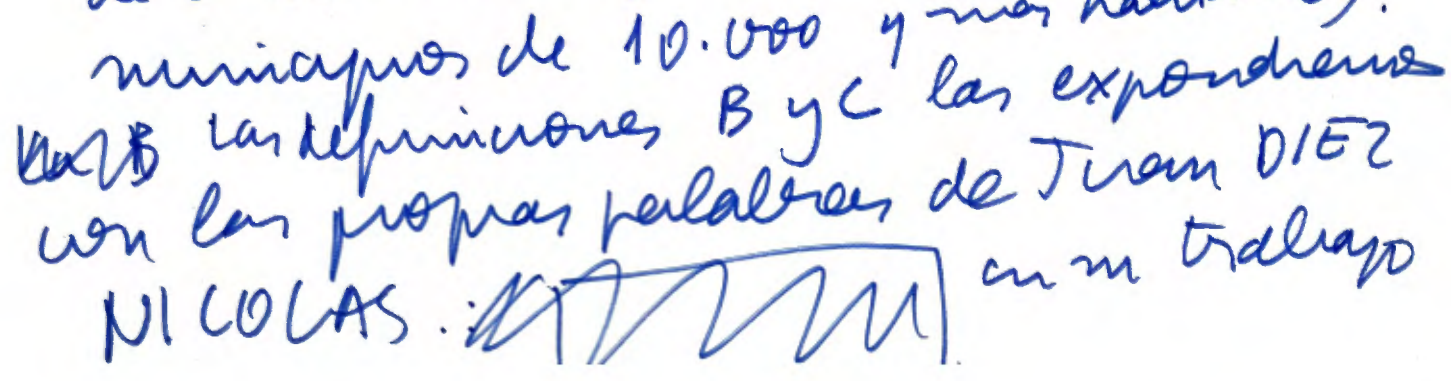 municipios de 10.000 y más
Las definiciones B y C las expondremos
con las propias palabras de Juan DIEZ
NICOLAS. en su trabajo